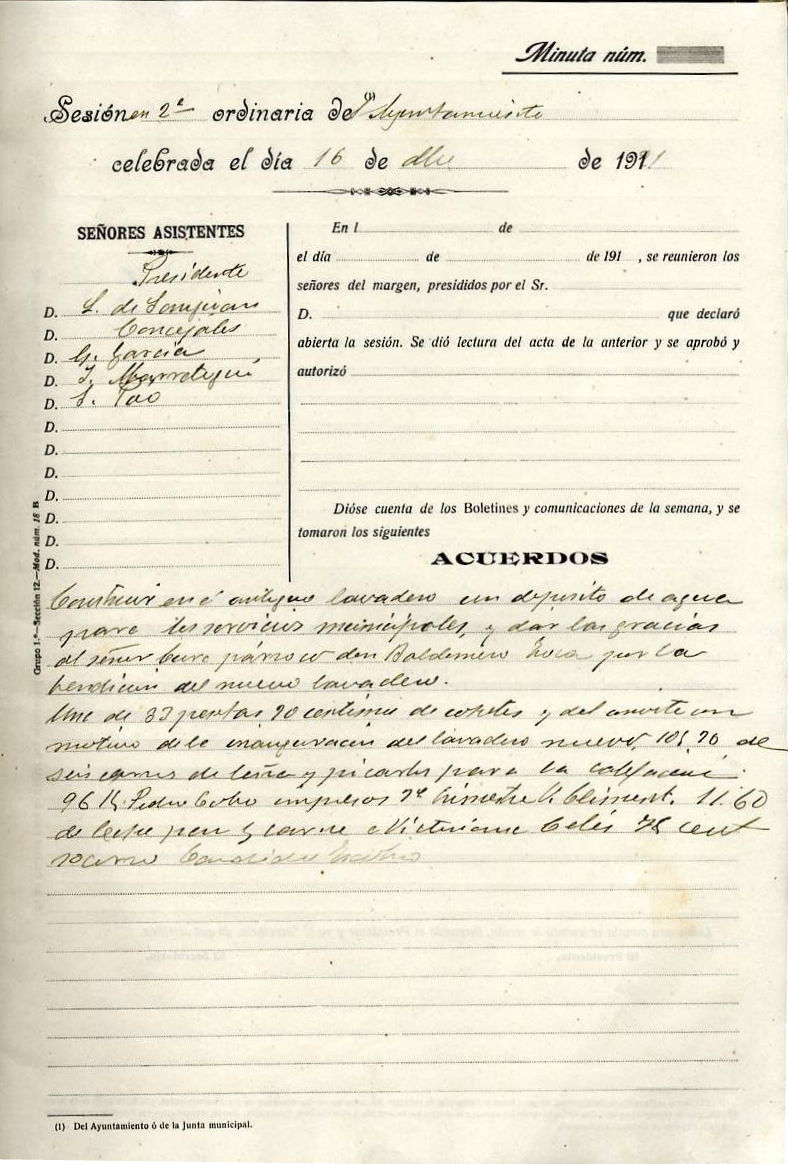 Minuta núm.
Sesión en 2ª ordinaria del Ayuntamiento (1)
celebrada el día 16 de de 1911
SEÑORES ASISTENTES
Presidente
D. L. de
Concejales
D.
D. G. García
D.
D. S.
D.
D.
D.
D.
D.
D.
D.
En l de
el día de de 191 , se reunieron los
señores del margen, presididos por el Sr.
D. que declaró
abierta la sesión. Se dió lectura del acta de la anterior y se aprobó y
autorizó
Dióse cuenta de los Boletines y comunicaciones de la semana, y se
tomaron los siguientes
ACUERDOS
Construir en el antiguo lavadero un deposito de agua
para los servicios municipales, y dar las gracias
al señor Cura párroco don Baldomero por la
bendición del nuevo lavadero.
Una de 33 pesetas 20 centimos de cohetes y del con
motivo de la inauguración del lavadero nuevo, de
seis carros de leña y picarlos para la calefacción
96 Pedro Cobo impresos trimestre 11.60
de leche pan y carne a Victoriana Celis 75 cent
socorro
Grupo 1.º—Sección 12.—Mod. núm. 18 B
(1) Del Ayuntamiento ó de la Junta municipal.